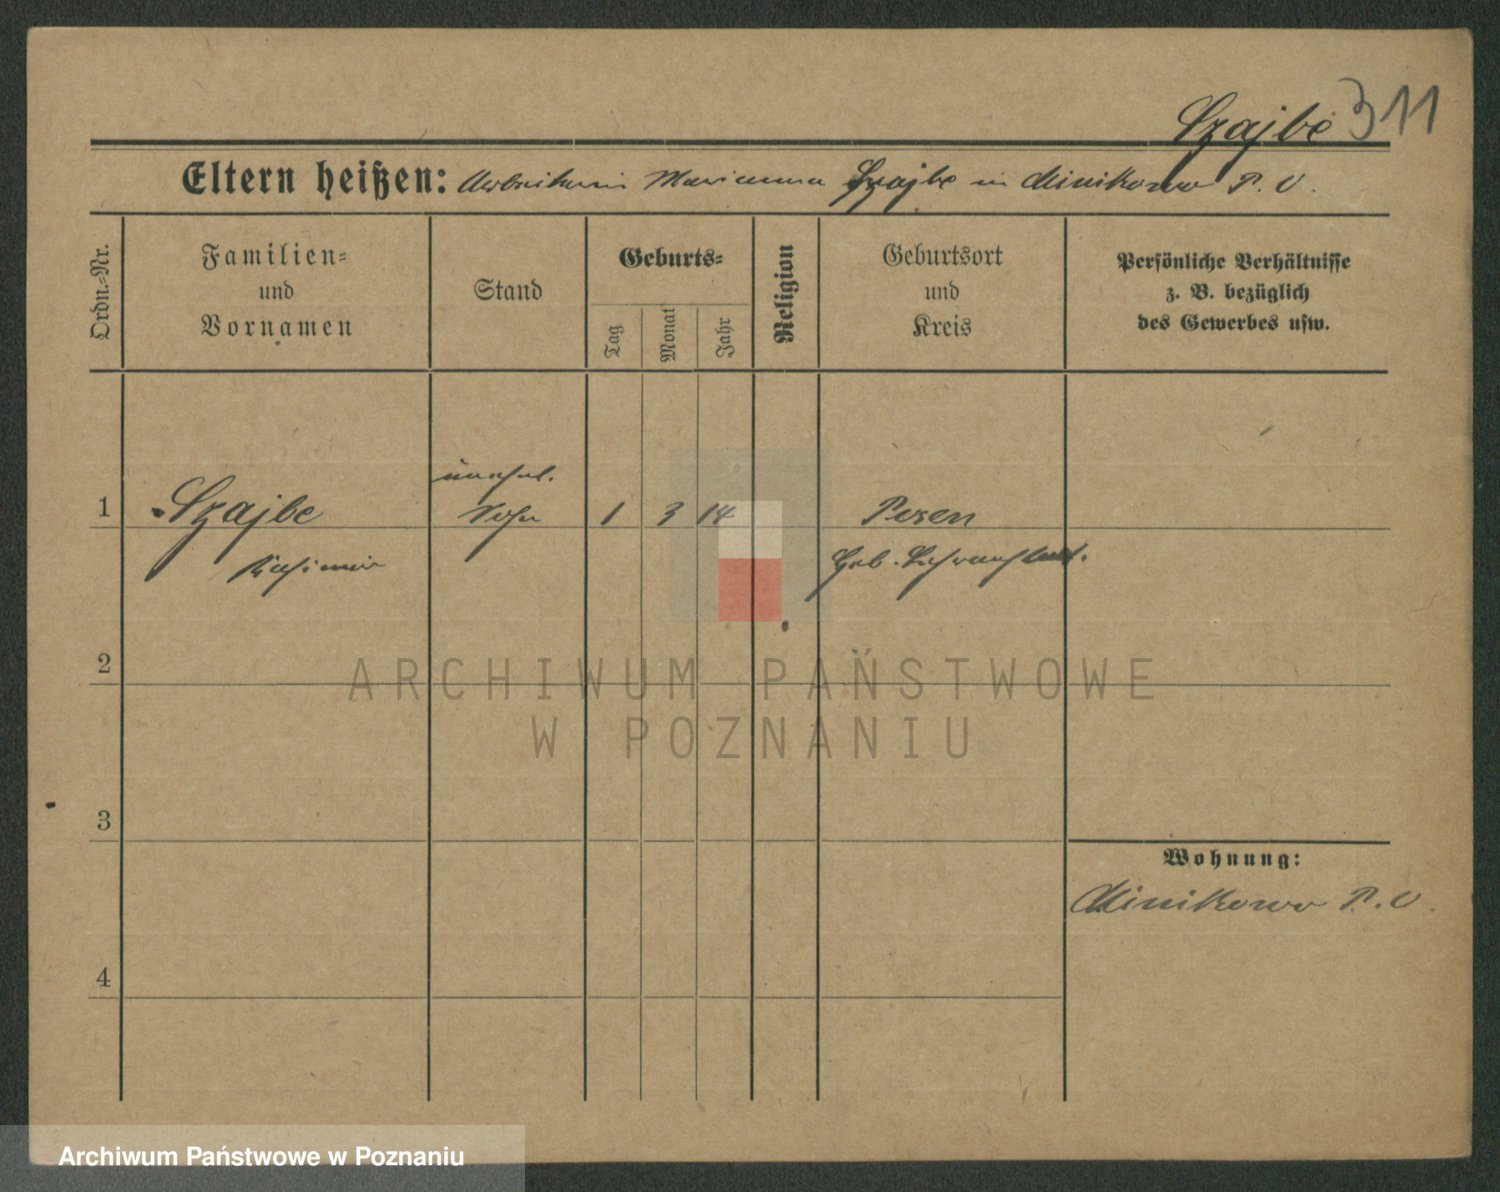 Szajbe 311
Eltern heißen: Arbeiterin Marianna Szajbe in Minikowo P. O.
Ordn.-Nr.
Familien-
und
Vornamen
Stand
Geburts-
Tag
Monat
Jahr
Religion
Geburtsort
und
Kreis
Persönliche Verhältnisse
z. B. bezüglich
des Gewerbes usw.
unehel.
1 Szajbe Sohn 1 3 14 Posen
Kasimir Geb.
2
ARCHIWUM PAŃSTWOWE
W POZNANIU
3
Wohnung:
Minikowo P. O.
4
Archiwum Państwowe w Poznaniu